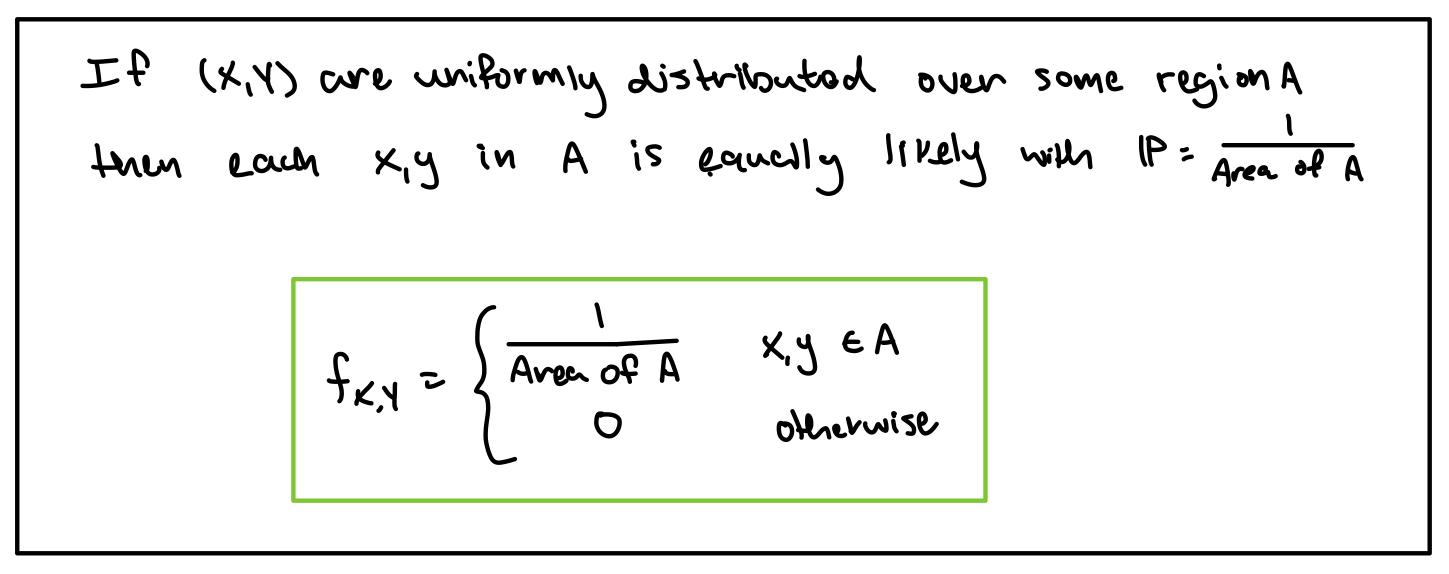 If (X,Y) are uniformly distributed over some region A
then each x,y in A is equally likely with ℙ = 1/Area of A
f_{X,Y} = { 1/Area of A    x,y ∈ A
0    otherwise